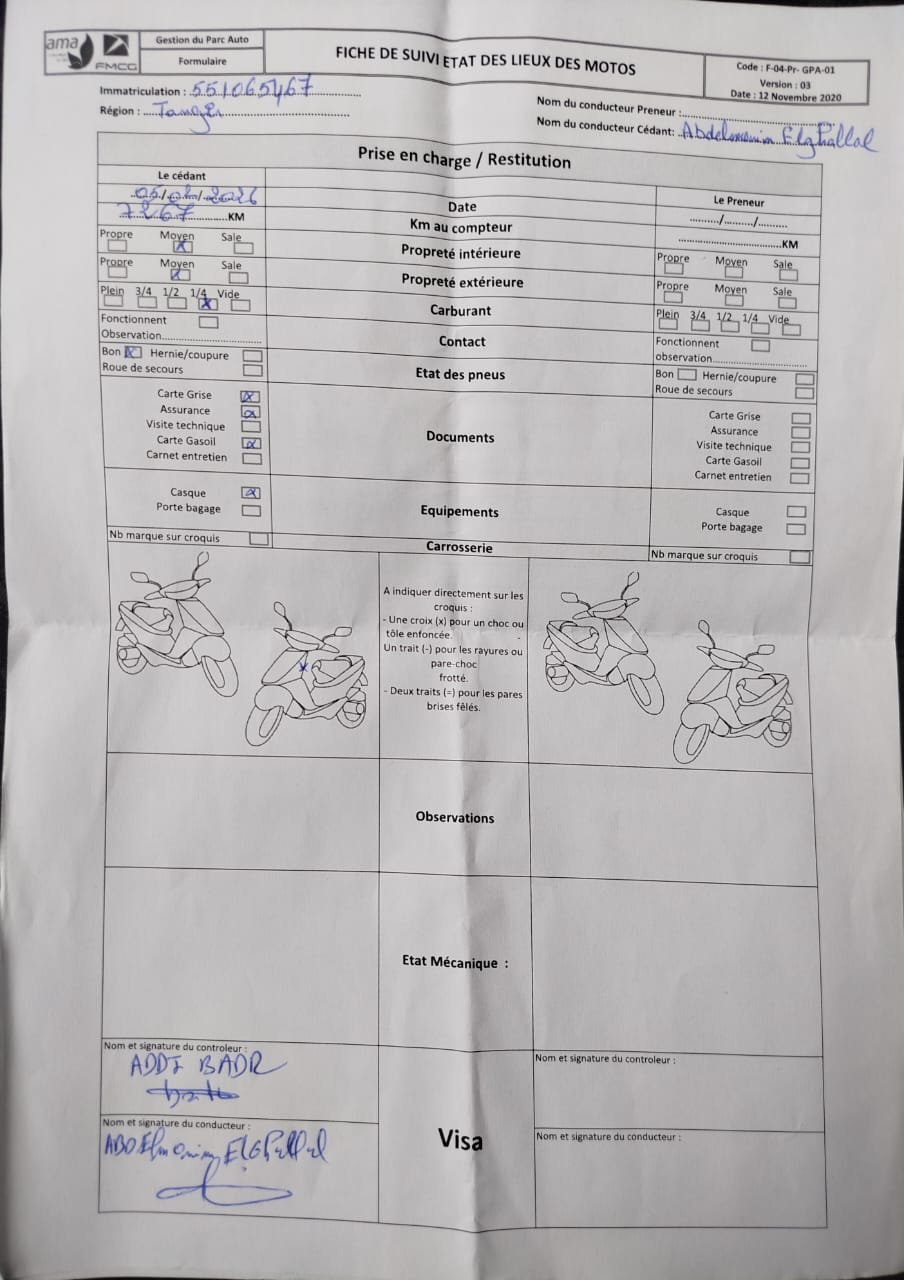 ama
FMCG
Gestion du Parc Auto
Formulaire
FICHE DE SUIVI ETAT DES LIEUX DES MOTOS
Code : F-04-Pr- GPA-01
Version : 03
Date : 12 Novembre 2020
Immatriculation : 551065467
Région : Tanger
Nom du conducteur Preneur :
Nom du conducteur Cédant:
Prise en charge / Restitution
Le cédant
Le Preneur
05/02/2026
Date
...../...../.....
7267 KM
Km au compteur
KM
Propre Moyen Sale
Propreté intérieure
Propre Moyen Sale
Propre Moyen Sale
Propreté extérieure
Propre Moyen Sale
Plein 3/4 1/2 1/4 Vide
Carburant
Plein 3/4 1/2 1/4 Vide
Fonctionnent
Observation
Contact
Fonctionnent
observation
Bon Hernie/coupure
Roue de secours
Etat des pneus
Bon Hernie/coupure
Roue de secours
Carte Grise
Assurance
Visite technique
Carte Gasoil
Carnet entretien
Documents
Carte Grise
Assurance
Visite technique
Carte Gasoil
Carnet entretien
Casque
Porte bagage
Equipements
Casque
Porte bagage
Nb marque sur croquis
Carrosserie
Nb marque sur croquis
A indiquer directement sur les
croquis :
- Une croix (x) pour un choc ou
tôle enfoncée.
Un trait (-) pour les rayures ou
pare-choc
frotté.
- Deux traits (=) pour les pares
brises fêlés.
Observations
Etat Mécanique :
Nom et signature du controleur :
ADDI BADR
Nom et signature du conducteur :
Visa
Nom et signature du controleur :
Nom et signature du conducteur :